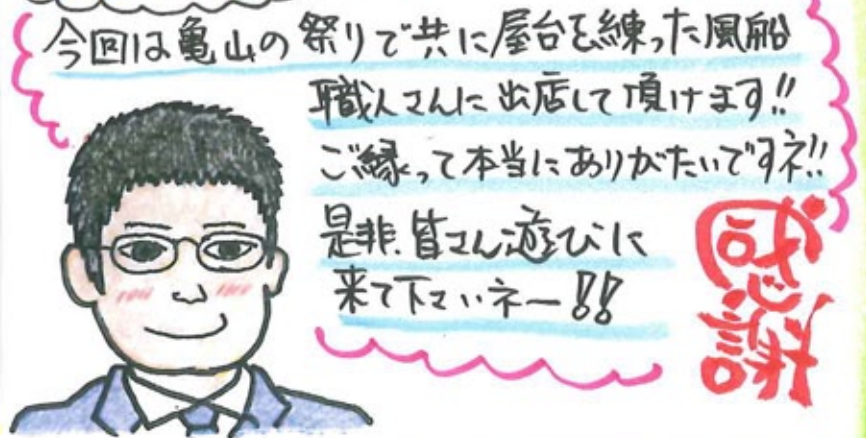 今回は亀山の祭りで共に屋台を練った風船
職人さんに出店して頂けます!!
ご縁って本当にありがたいですネ!!
是非、皆さん遊びに
来て下さいネー!!